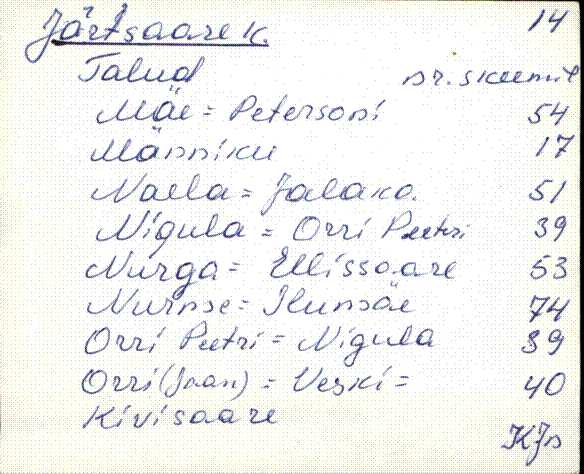 Järtsaare k. 14
Talud nr. skeemil
Mäe = Petersoni 54
Männiku 17
Naela = Jalaka. 51
Nigula = Orri Peetri 39
Nurga = Ellissaare 53
Nurme = Ilumäe 74
Orri Peetri = Nigula 39
Orri (Jaan) = Veski = 40
Kivisaare